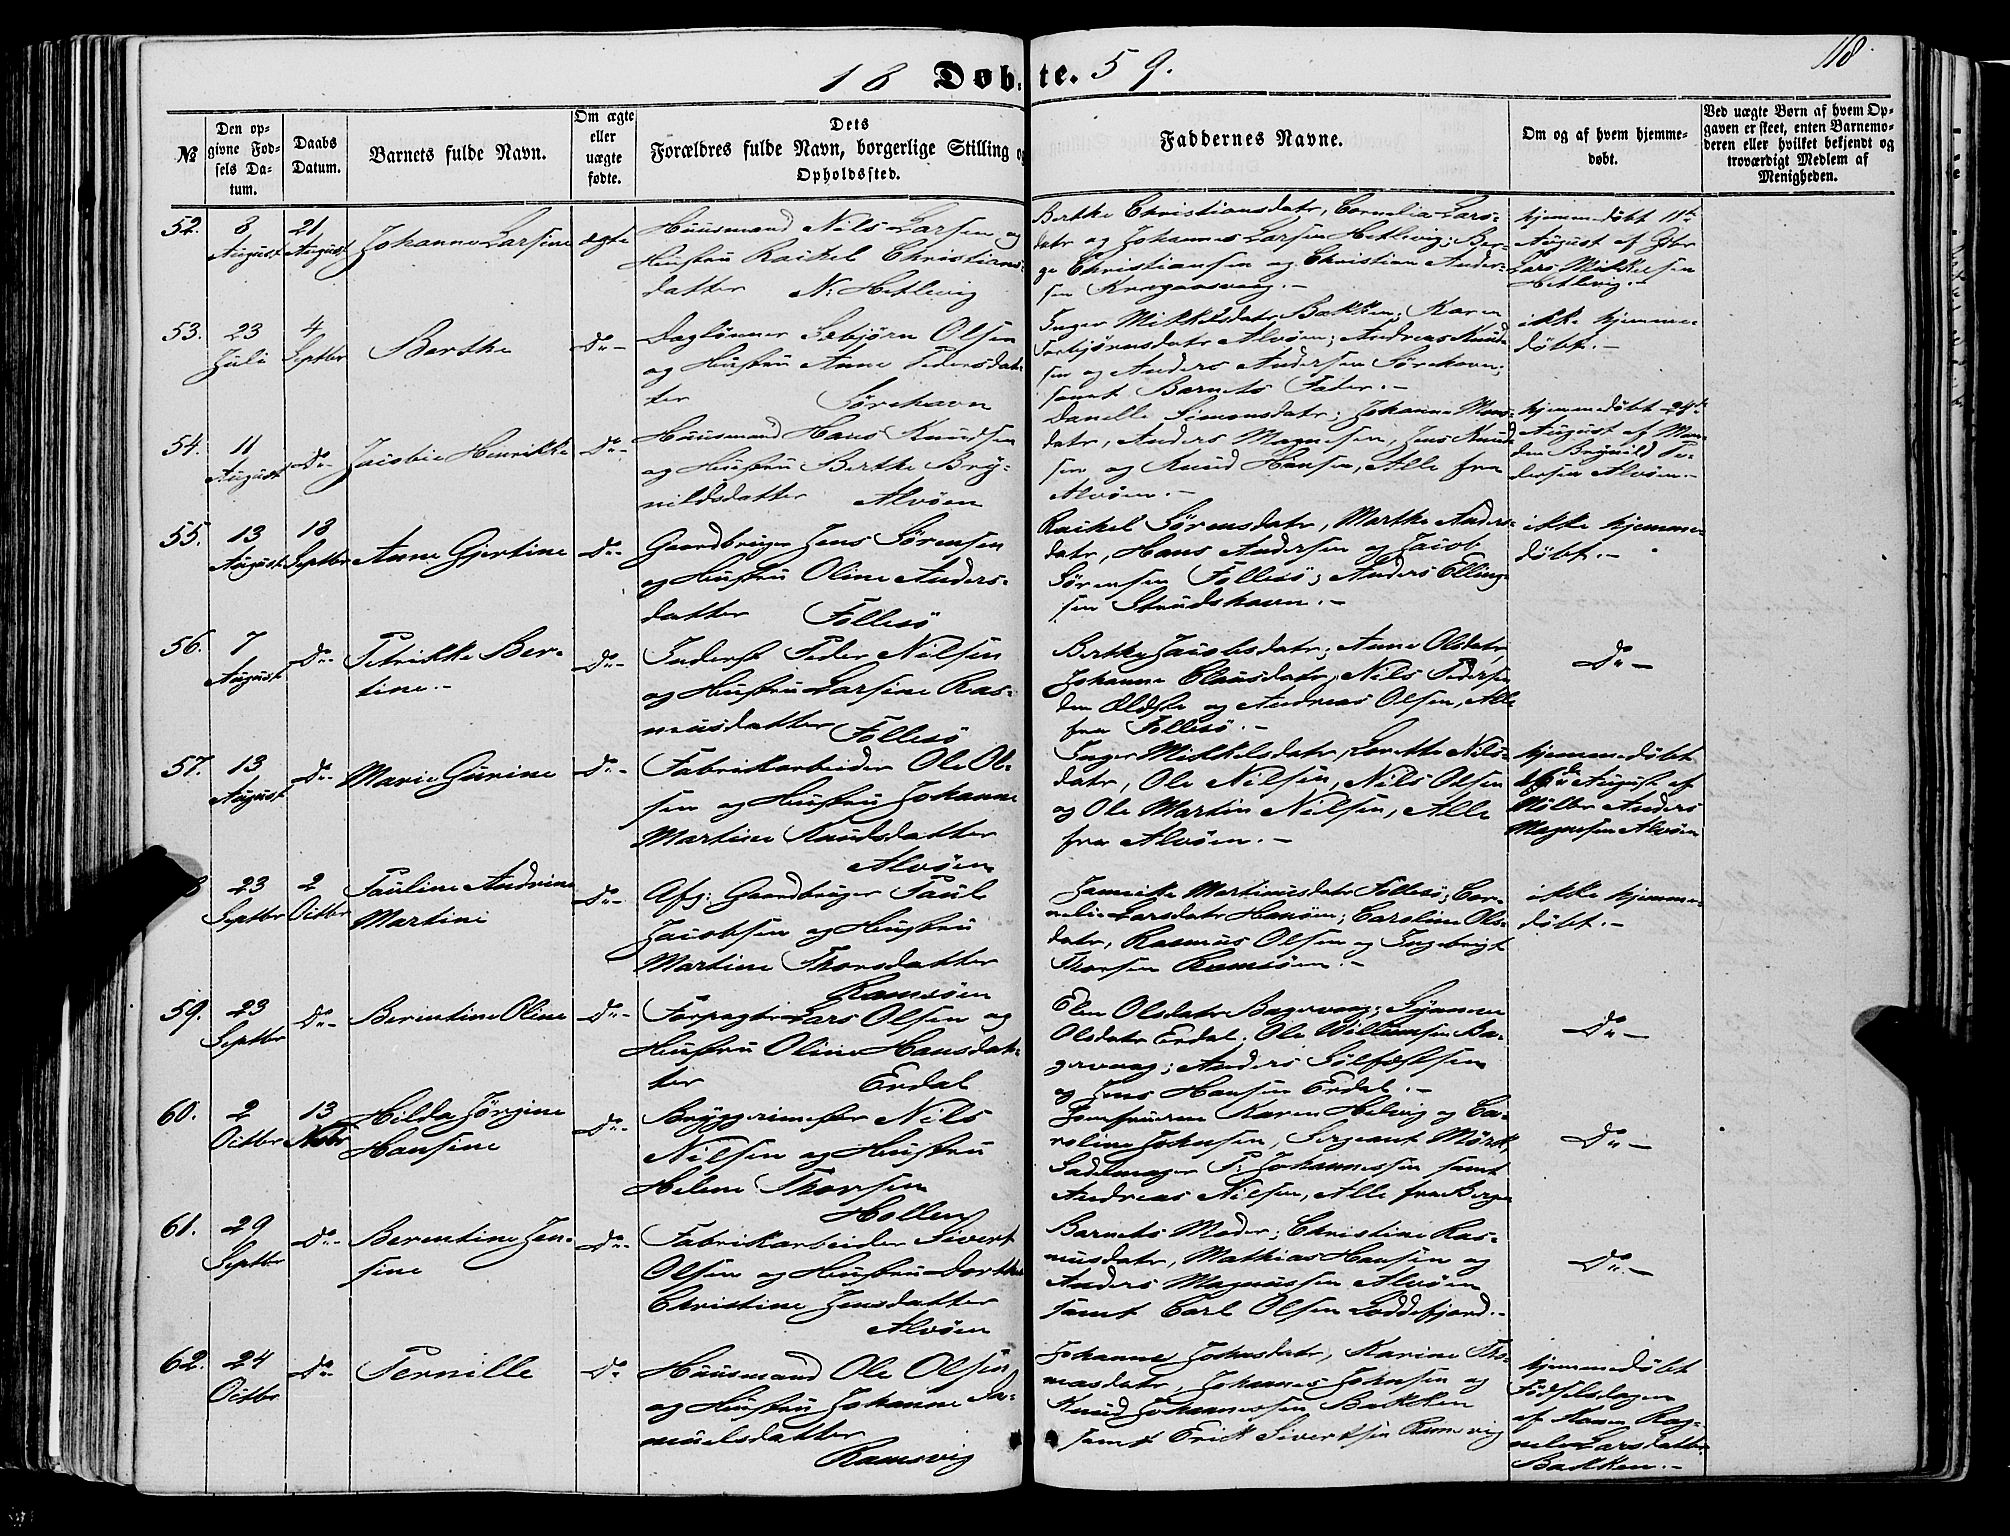 118
18 Døbte. 59.
№
Den op-
givne Fød-
sels Da-
tum.
Daabs
Datum.
Barnets fulde Navn.
Om ægte
eller
uægte
fødte.
Dets
Forældres fulde Navn, borgerlige Stilling og
Opholdssted.
Faddernes Navne.
Om og af hvem hjemme-
døbt.
Ved uægte Børn af hvem Op-
gaven er skeet, enten Barnemo-
deren eller hvilket bekjendt og
troværdigt Medlem af
Menigheden.
52.
8
August
21
August
Johanne Larsine
ægte
Huusmand Nils Larsen og
Hustru Raikel Christians-
datter N: Hetlevig
Berthe Christiansdatr, Cornelia Lars-
datr og Johannes Larsen Hetlevig; Ber-
ge Christiansen og Christian Ander-
sen
hjemmedøbt 11te
August af
Lars Mikkelsen
Hetlevig.-
53.
23
Juli
4
Septbr
Berthe
Do-
Daglønner Sebjørn Olsen
og Hustru Anne Pedersdat-
ter Sørehavn
Inger Mikkelsdatr Bakken; Karen
Torbjørnsdatr Alvøen; Andreas Knud-
sen og Anders Andersen Sørehavn;
samt Barnets Fader.-
ikke hjemme-
døbt.-
54.
11
August
Do-
Jacobie Henrikke
Do-
Huusmand Hans Knudsen
og Hustru Berthe Bry-
nildsdatter Alvøen
Danelle Simonsdatr; Johanne Mons-
datr, Anders Magnesen, Jens Knud-
sen og Knud Hansen, Alle fra
Alvøen.-
hjemmedøbt 24de
August af Man-
den Brynild Pe-
dersen Alvøen-
55.
13
August
18
Septbr
Anne Gjertine
Do-
Gaardbruger Jens Sørensen
og Hustru Oline Anders-
datter Follesø
Raikel Sørensdatr, Marthe Anders-
datr, Hans Andersen og Jacob
Sørensen Follesø; Anders Elling-
sen Strudshavn.-
ikke hjemme-
døbt.-
56.
7
August
Do-
Petrikke Ber-
tine.-
Do-
Inderst Peder Nilsen
og Hustru Larsine Ras-
musdatter Follesø
Berthe Jacobsdatr; Anne Olsdatr,
Johanne Clausdatr, Nils Pedersen
den Ældste og Andreas Olsen, Alle
fra Follesø.-
Do-
57.
13
August
Do-
Marie Gurine
Do-
Fabrikarbeider Ole Ol-
sen og Hustru Johanne
Martine Knudsdatter
Alvøen
Inger Mikkelsdatr, Lorette Nils-
datr, Ole Nilsen, Nils Olsen
og Ole Martin Nilsen, Alle
fra Alvøen.-
hjemmedøbt
August af
Møller Anders
Magnesen Alvøen
8
23
Septbr
2
Octbr
Pauline Andrine
Martine
Do-
Afg: Gaardbruger Paul
Jacobsen og Hustru
Martine Thorsdatter
Ramsøen
Jannike Martinusdatr Follesø; Cor-
nelia Larsdatr Hanøen; Caroline Ols-
datr, Rasmus Olsen og Ingebrigt
Thorsen Ramsøen.-
ikke hjemme-
døbt.-
59.
23
Septbr
Do-
Berentine Oline
Do-
Forpagter Lars Olsen og
Hustru Oline Hansdat-
ter Erdal
Elen Olsdatr Bagervaag; Synneve
Olsdatr Erdal; Ole Willumsen Ba-
gervaag; Anders Sølfæstsen
og Jens Hansen Erdal.-
Do-
60.
2
Octbr
13
Novbr
Hilda Jørgine
Hansine
Do-
Bryggerimester Nils
Nilsen og Hustru
Helene Thorsen
Hollen
Jomfruerne Karen Helvig og Ca-
roline Johnsen, Sergeant Mørk
Sadelmager P: Johannessen samt
Andreas Nilsen, Alle fra Bergen
Do-
61.
29
Septbr
Do-
Berentine Jen-
sine
Do-
Fabrikarbeider Sivert
Olsen og Hustru Dorthe
Christine Jensdatter
Alvøen
Barnets Moder; Christine Ras-
musdatr, Mathias Hansen og
Anders Magnussen Alvøen
samt Carl Olsen Loddefjord.-
Do-
62.
24
Octbr
Do-
Pernille
Do
Huusmand Ole Olsen
og Hustru Johanne Sa-
muelsdatter
Ramsvig
Johanne Johnsdatr, Karine Tho-
masdatr, Johannes Johnsen og
Knud Johannessen Bakken
samt Erik Sivertsen Ramsvig
hjemmedøbt
Fødselsdagen
af Konen Rag-
nele Larsdatter
Bakken.-